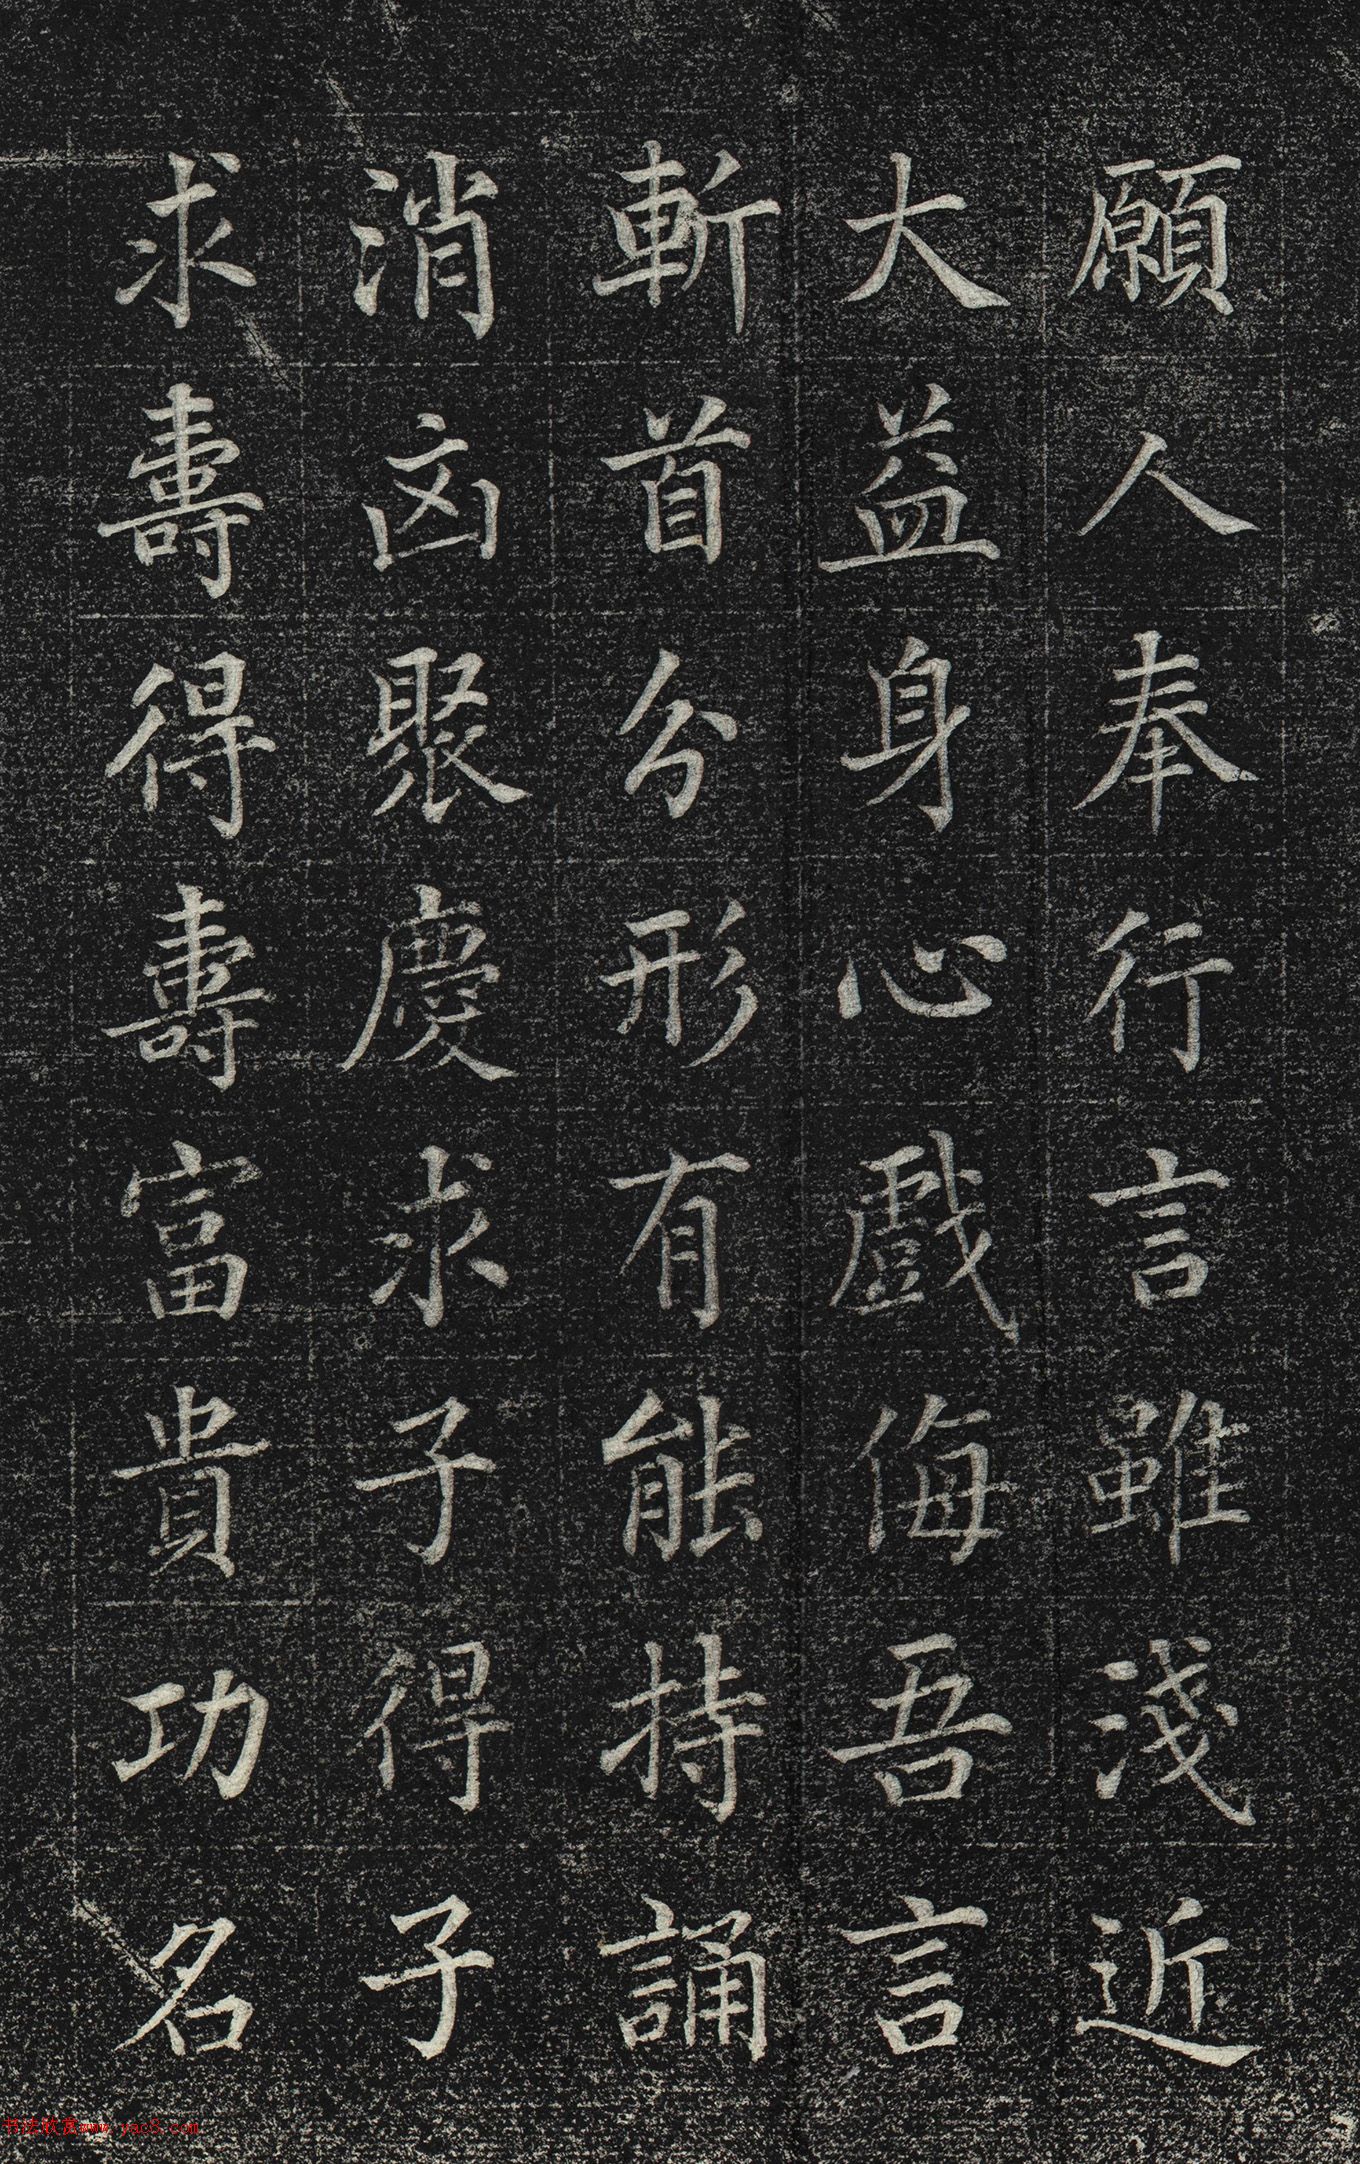 願人奉行言雖淺近
大益身心戲侮吾言
斬首分形有能持誦
消凶聚慶求子得子
求壽得壽富貴功名
书法欣赏www.yac8.com